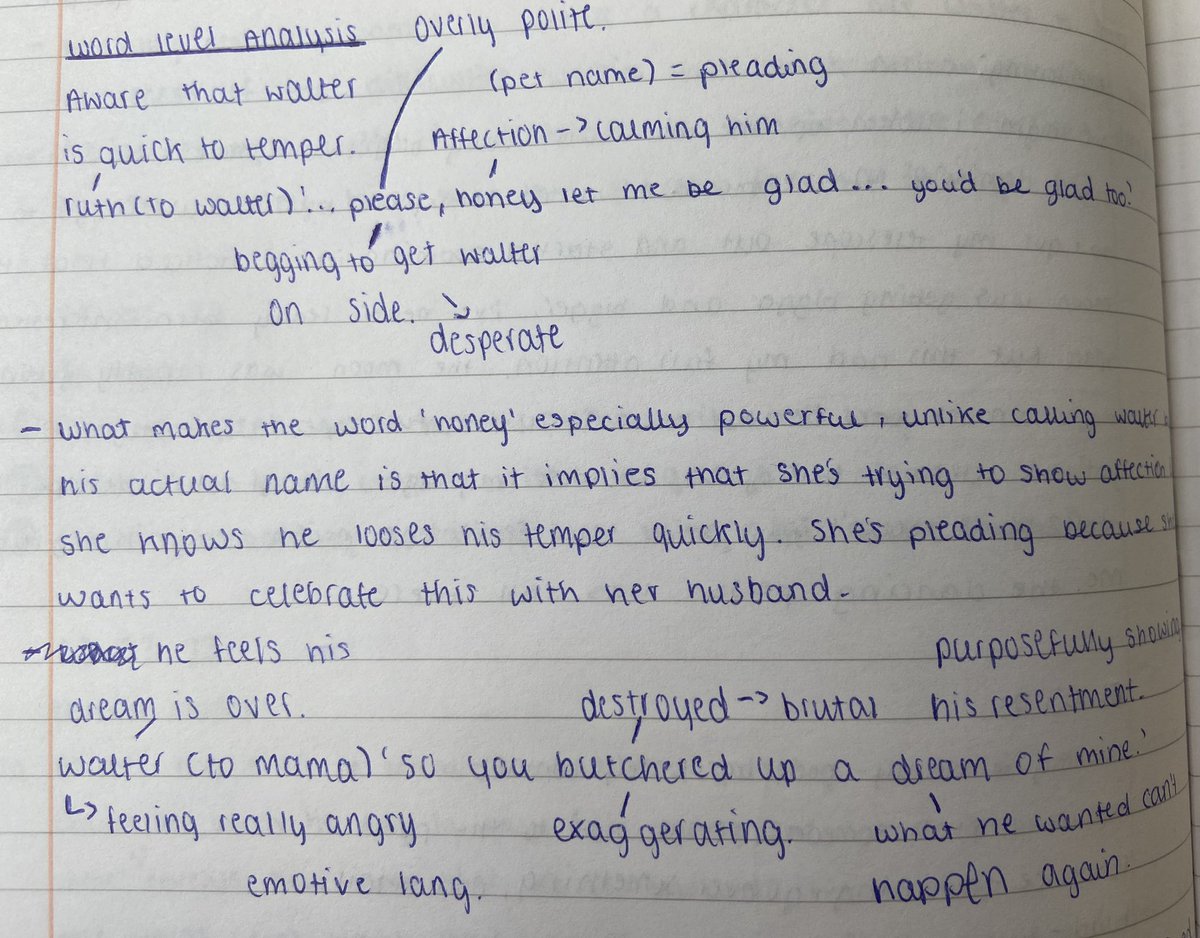 word level Analysis overly polite.
Aware that walter (pet name) = pleading
is quick to temper. Affection -> calming him
ruth (to walter) '... please, honey let me be glad... you'd be glad too.'
begging to get walter
on side.
desperate
- what makes the word 'honey' especially powerful, unlike calling walter
his actual name is that it implies that she's trying to show affection
she knows he looses his temper quickly. she's pleading because
wants to celebrate this with her husband.
he feels his purposefully showing
dream is over. destroyed -> brutal his resentment.
walter (to mama) 'so you butchered up a dream of mine.'
↳ feeling really angry exaggerating. what he wanted can't
emotive lang. happen again.